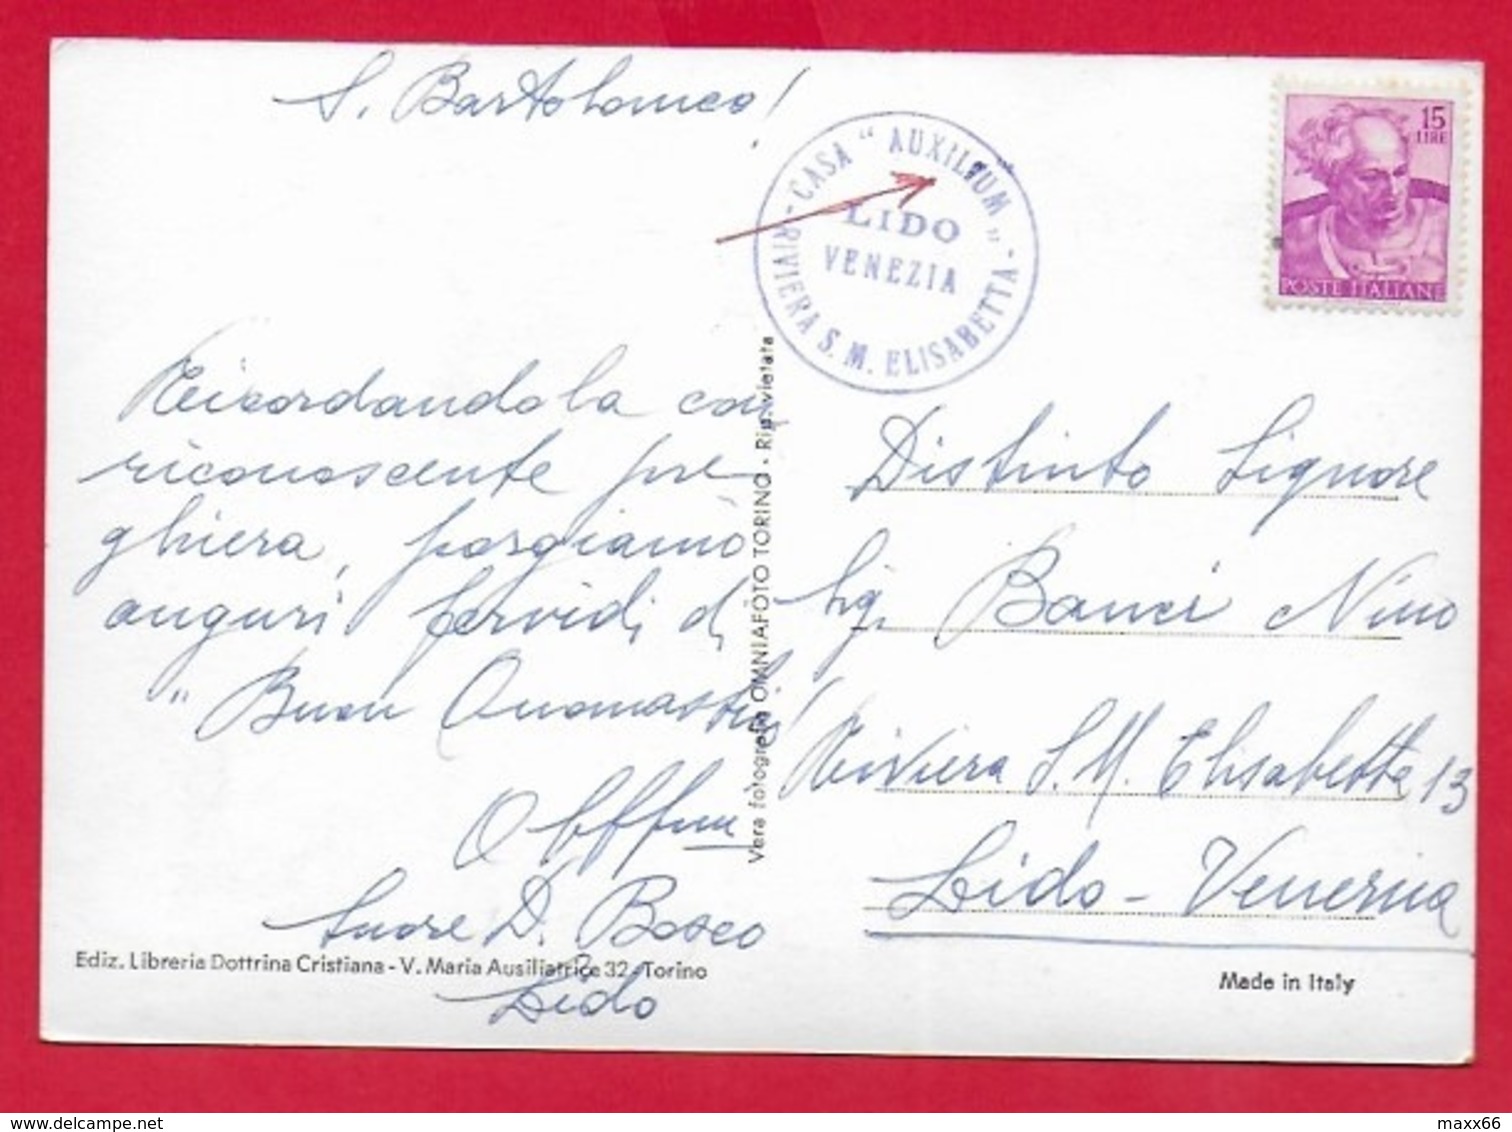 S. Bartolomeo!
CASA " AUXILIUM " - RIVIERA S. M. ELISABETTA -
LIDO
VENEZIA
15
LIRE
POSTE ITALIANE
Ricordandola con
riconoscente pre
ghiera, porgiamo
auguri fervidi di
" Buon Onomastico!
Obff.me
Suore D. Bosco
Lido
Vera fotografia OMNIAFOTO TORINO - Rip. vietata
Distinto Signore
Sig. Banci Nino
Riviera S. M. Elisabetta 13
Lido - Venezia
Ediz. Libreria Dottrina Cristiana - V. Maria Ausiliatrice 32 - Torino
Made in Italy
delcampe.net
maxx66